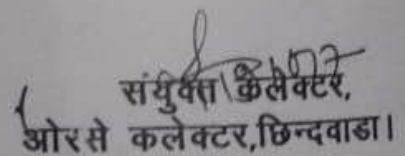 संयुक्त कलेक्टर,
ओर से कलेक्टर,छिन्दवाडा।